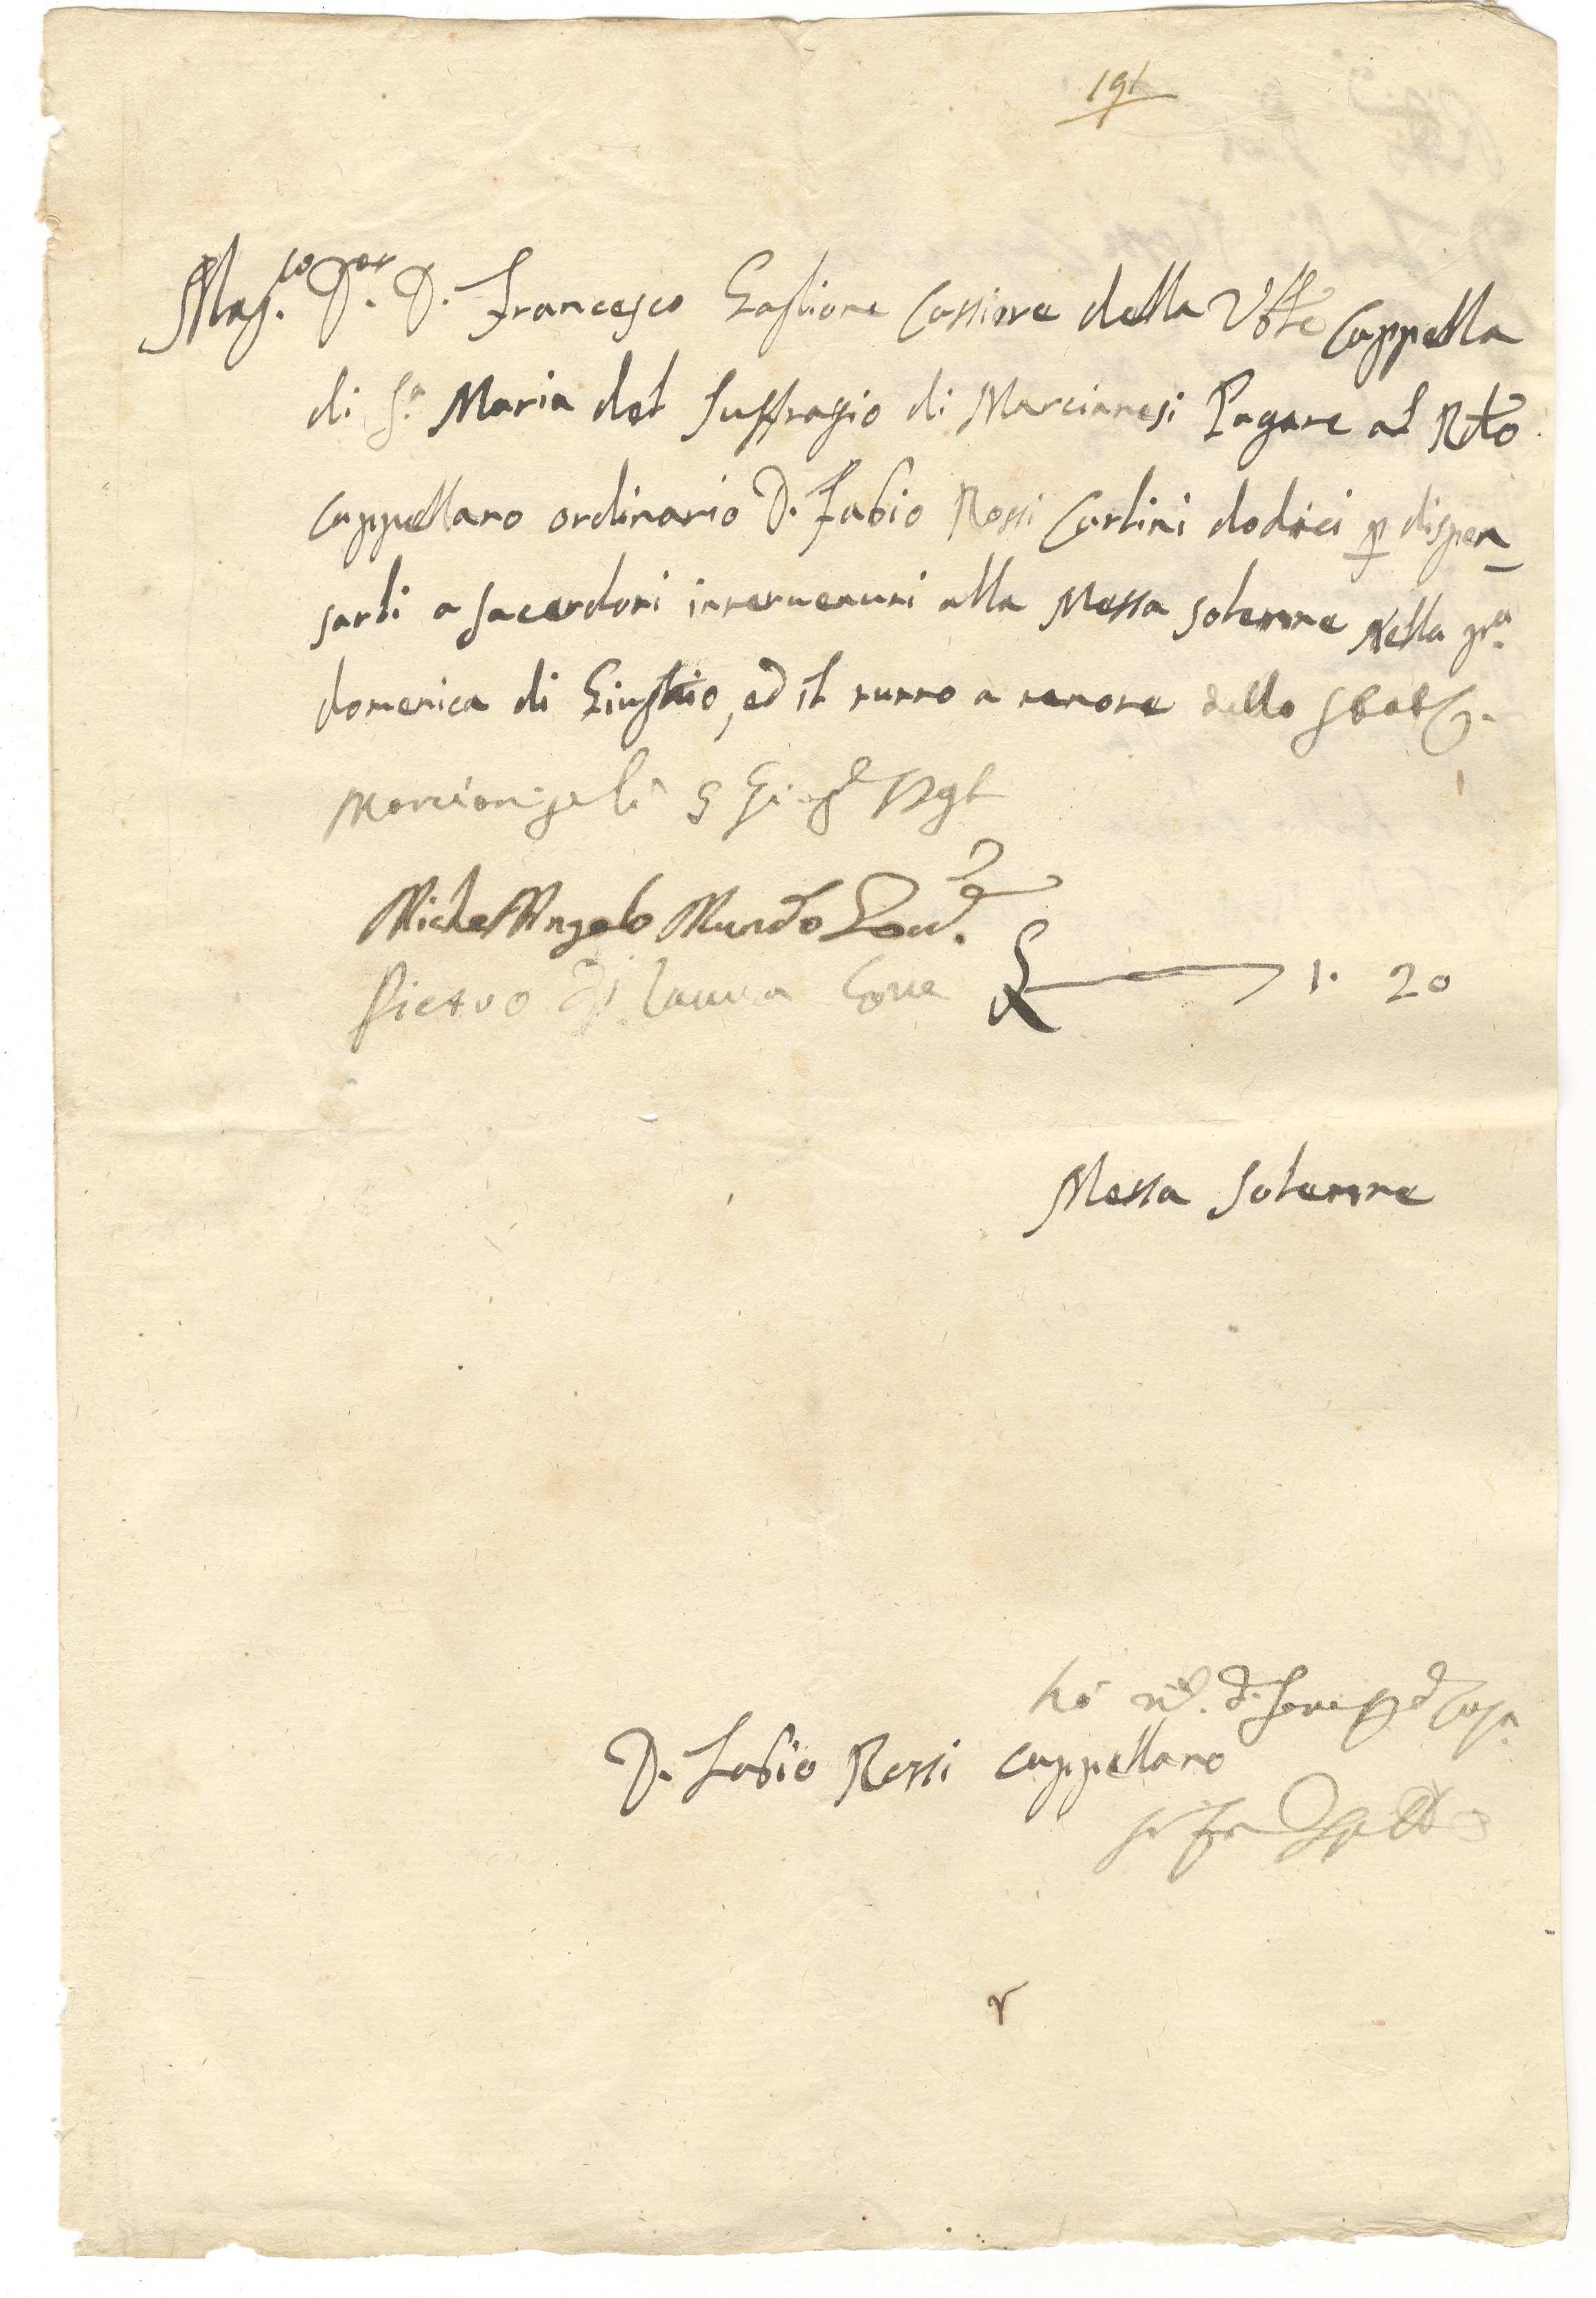 191
Mag.co D.or D. Francesco Gaglione Cassiere della V.ble Cappella
di S.a Maria del Suffragio di Marcianesi Pagare al R.do
Cappellano ordinario D. Fabio Rossi Carlini dodici p dispen
sarli a Sacerdoti intervenuti alla Messa solenne Nella p.a
domenica di Giuglio, ed il tutto a tenore dello Stab.
Marcianesi li 5
MichelAngelo Mundo Gov.re
Pietro di Laura Gove 1. 20
Messa Solenne
D. Fabio Rossi Cappellano